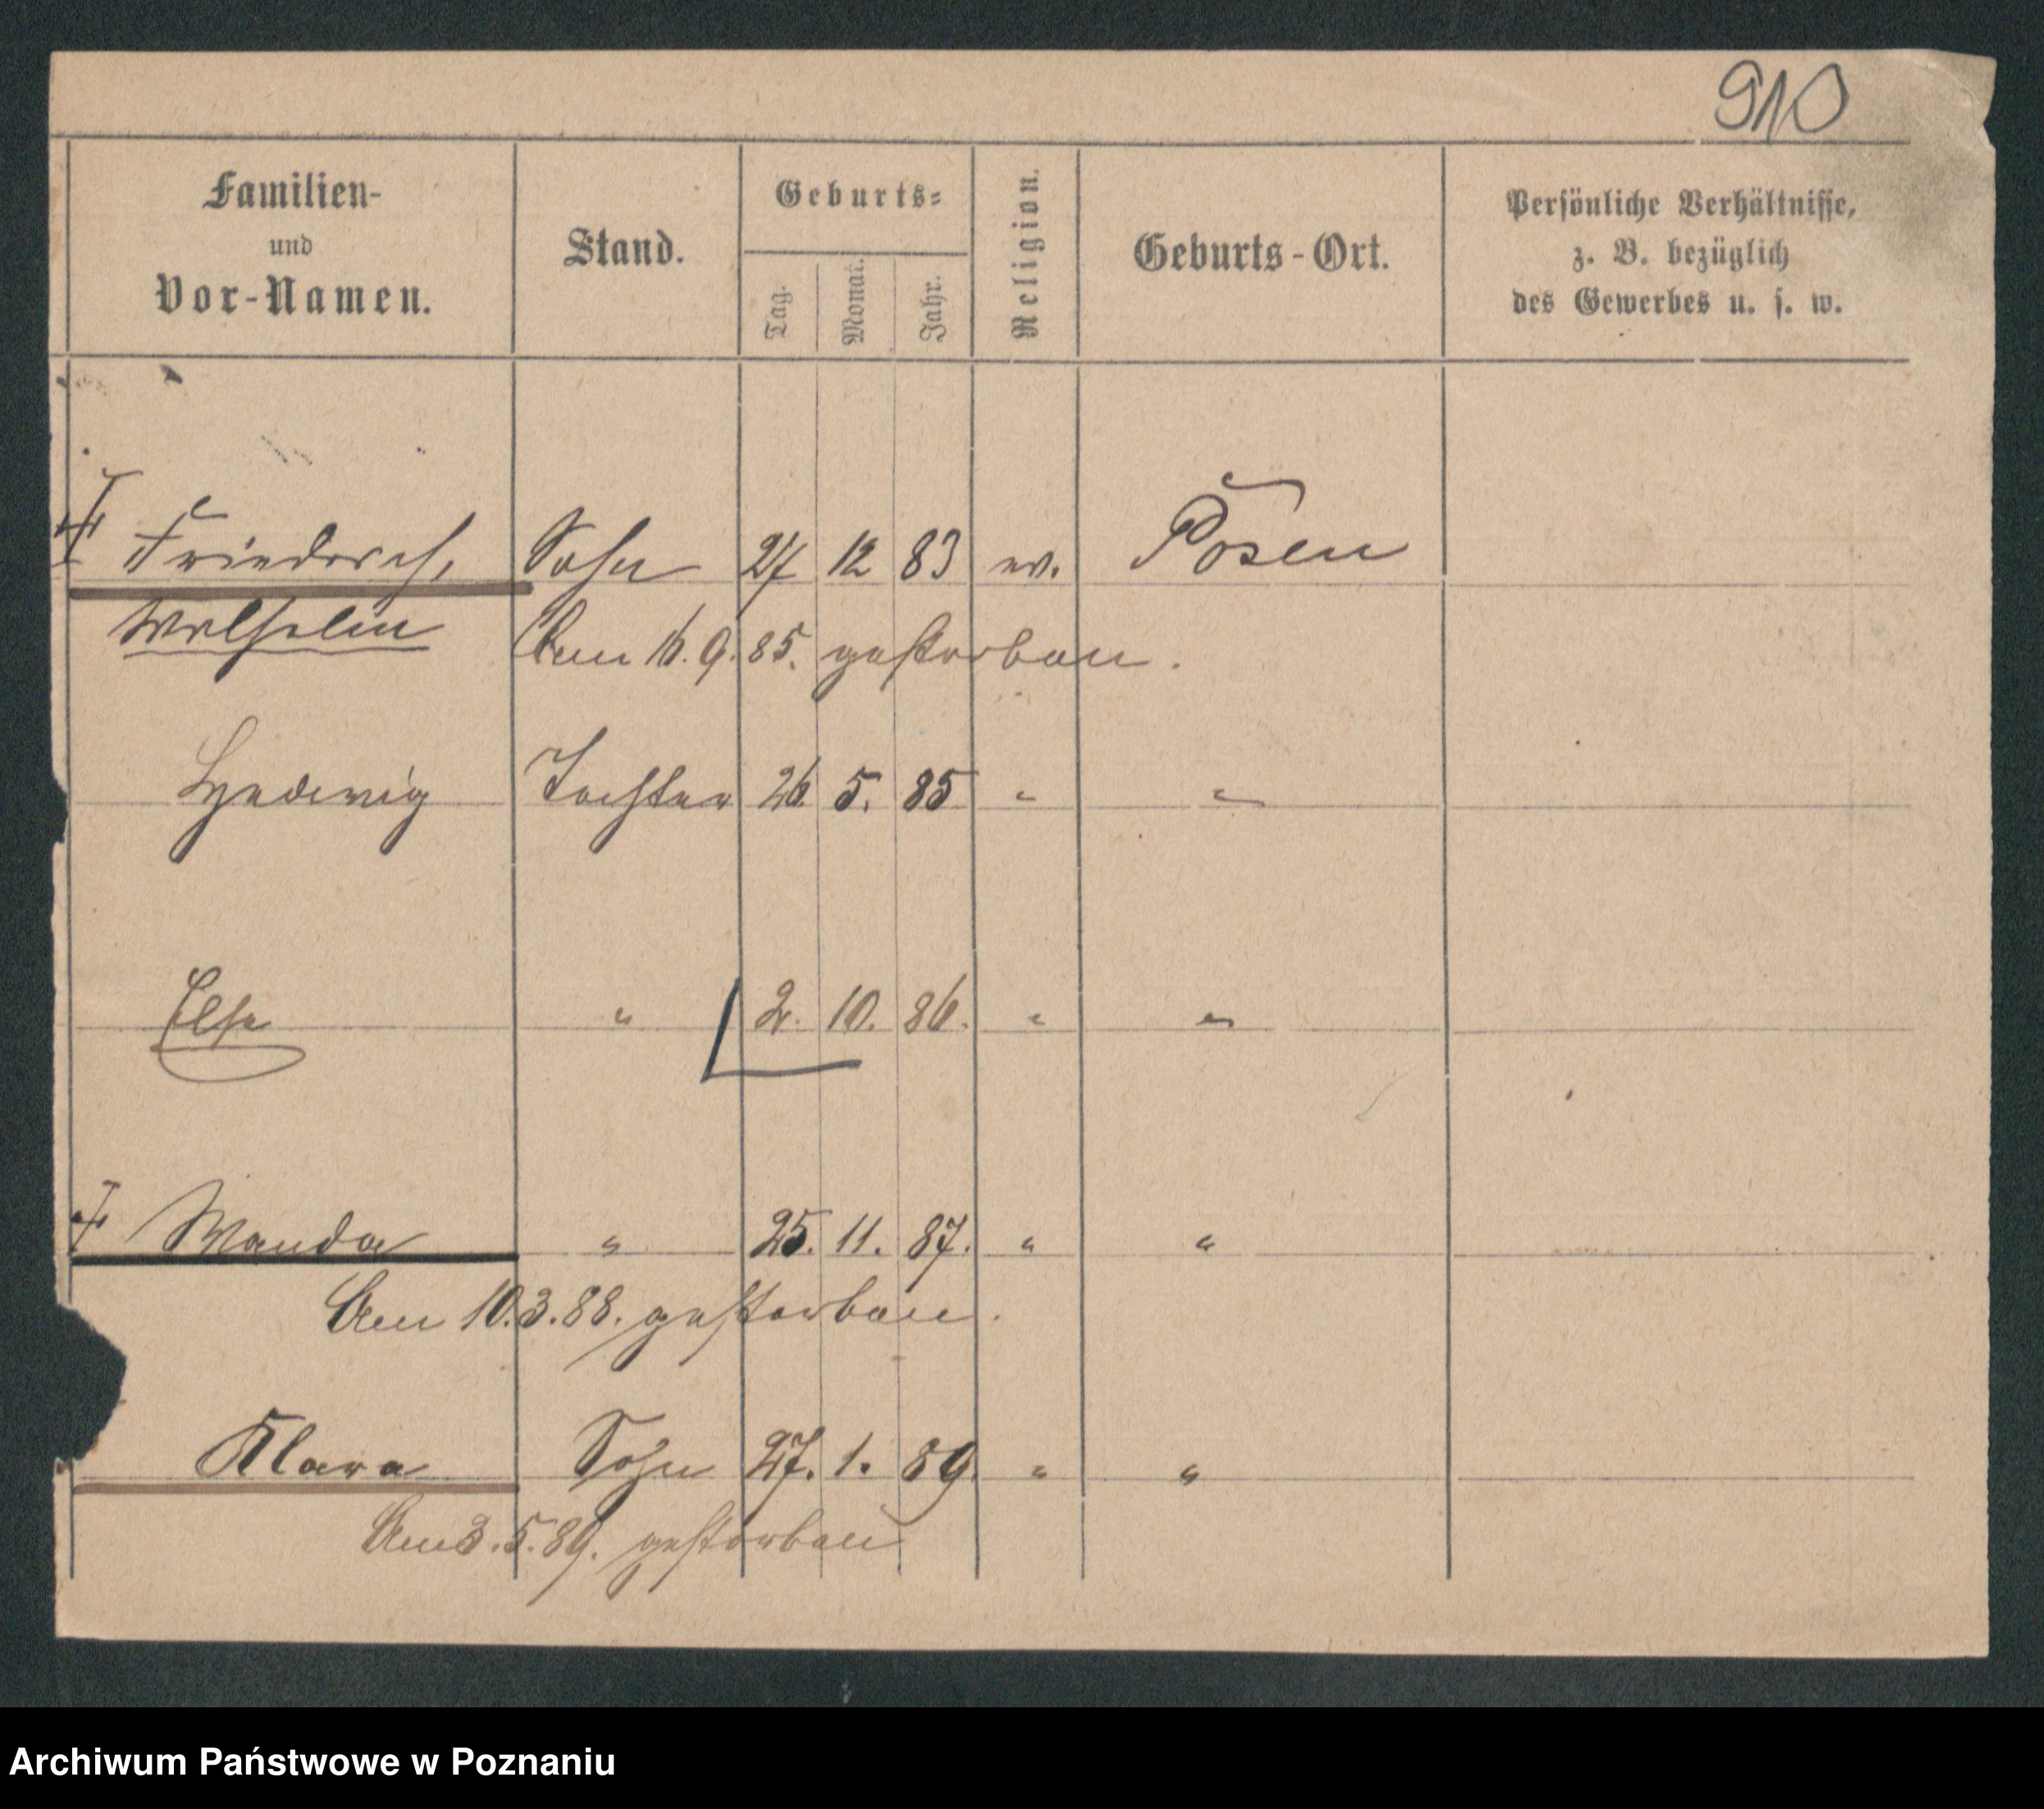 910
Familien-
und
Vor-Namen.
Stand.
Geburts-
Tag.
Monat.
Jahr.
Religion.
Geburts-Ort.
Persönliche Verhältnisse,
z. B. bezüglich
des Gewerbes u. s. w.
Friedrich, Sohn 27 12 83 ev. Posen
Wilhelm Am 16. 9. 85. gestorben.
Hedwig Tochter 26. 5. 85 " "
Else " 2. 10. 86. " "
Wanda " 25. 11. 87. " "
Am 10. 3. 88. gestorben.
Klara Sohn 27. 1. 89. " "
Am 3. 5. 89. gestorben
Archiwum Państwowe w Poznaniu